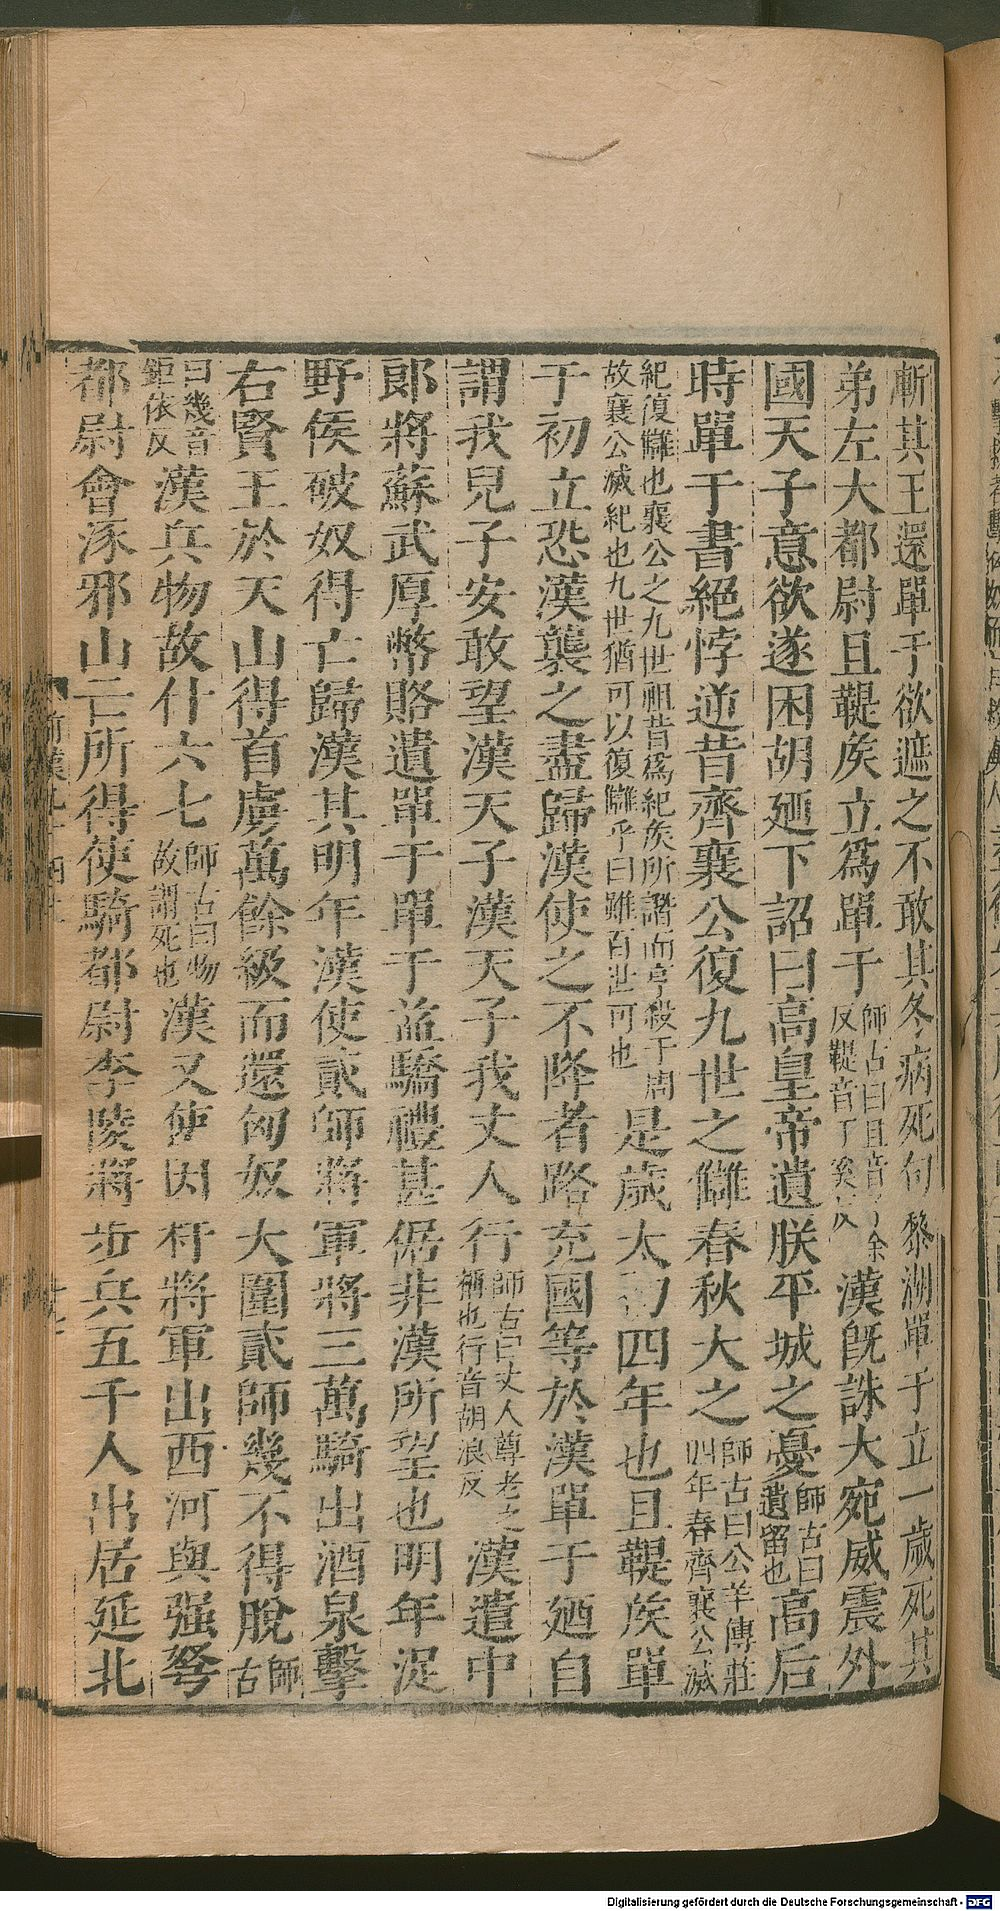 斬其王還單于欲遮之不敢其冬病死句黎湖單于立一歲死其
弟左大都尉且鞮侯立爲單于師古曰且音子余反鞮音丁奚反漢旣誅大宛威震外
國天子意欲遂困胡廼下詔曰高皇帝遺朕平城之憂師古曰遺留也高后
時單于書絕悖逆昔齊襄公復九世之讎春秋大之師古曰公羊傳莊四年春齊襄公滅
紀復讎也襄公之九世祖昔爲紀侯所譖而亨殺于周故襄公滅紀也九世猶可以復讎乎曰雖百世可也是歲太初四年也且鞮侯單
于初立恐漢襲之盡歸漢使之不降者路充國等於漢單于廼自
謂我兒子安敢望漢天子漢天子我丈人行師古曰丈人尊老之稱也行音胡浪反漢遣中
郎將蘇武厚幣賂遺單于單于益驕禮甚倨非漢所望也明年浞
野侯破奴得亡歸漢其明年漢使貳師將軍將三萬騎出酒泉擊
右賢王於天山得首虜萬餘級而還匈奴大圍貳師幾不得脫師古
曰幾音鉅依反漢兵物故什六七師古曰物故謂死也漢又使因杅將軍出西河與强弩
都尉會涿邪山亡所得使騎都尉李陵將步兵五千人出居延北
前漢九十四上
Digitalisierung gefördert durch die Deutsche Forschungsgemeinschaft - DFG